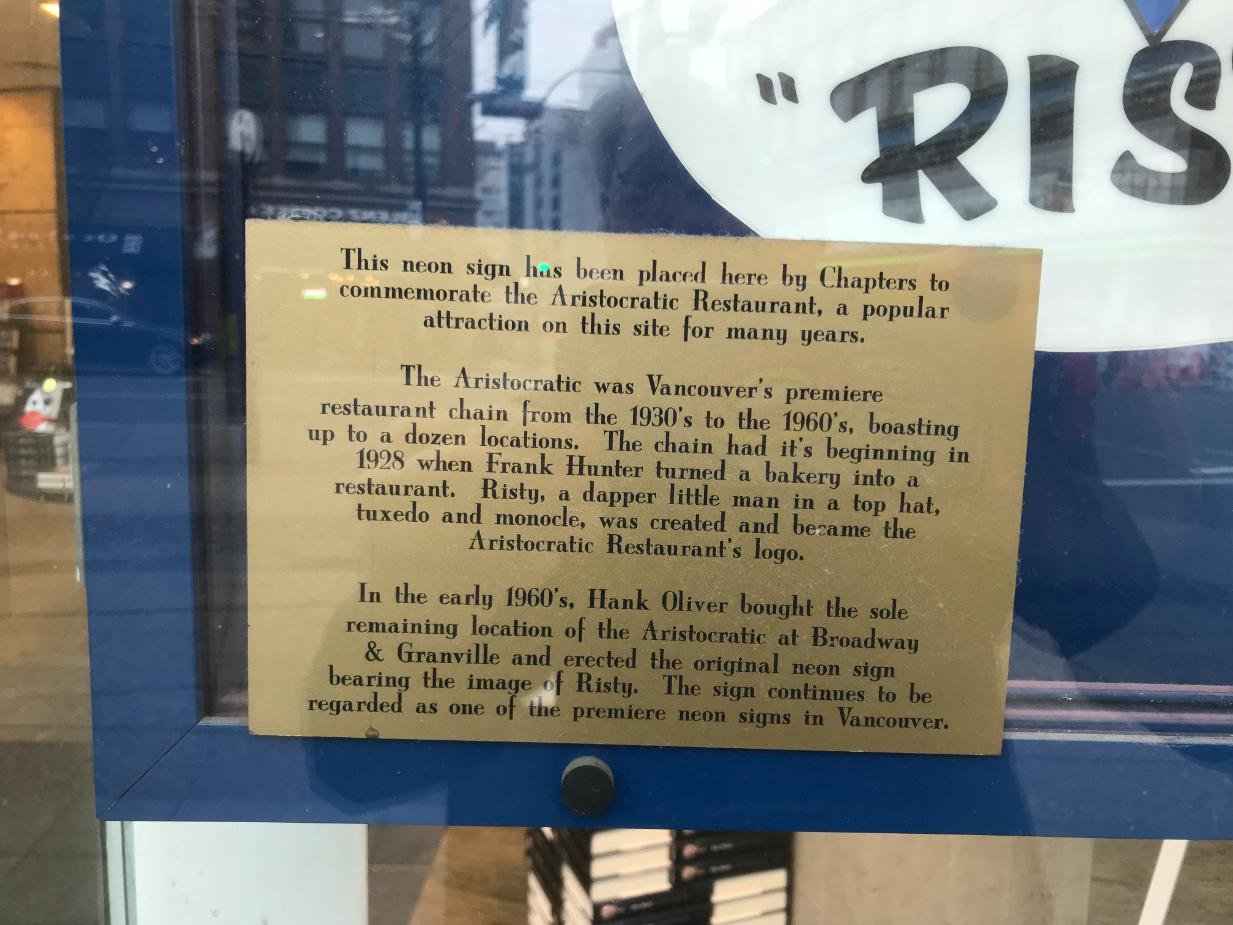 "RIS
This neon sign has been placed here by Chapters to
commemorate the Aristocratic Restaurant, a popular
attraction on this site for many years.
The Aristocratic was Vancouver's premiere
restaurant chain from the 1930's to the 1960's, boasting
up to a dozen locations. The chain had it's beginning in
1928 when Frank Hunter turned a bakery into a
restaurant. Risty, a dapper little man in a top hat,
tuxedo and monocle, was created and became the
Aristocratic Restaurant's logo.
In the early 1960's, Hank Oliver bought the sole
remaining location of the Aristocratic at Broadway
& Granville and erected the original neon sign
bearing the image of Risty. The sign continues to be
regarded as one of the premiere neon signs in Vancouver.